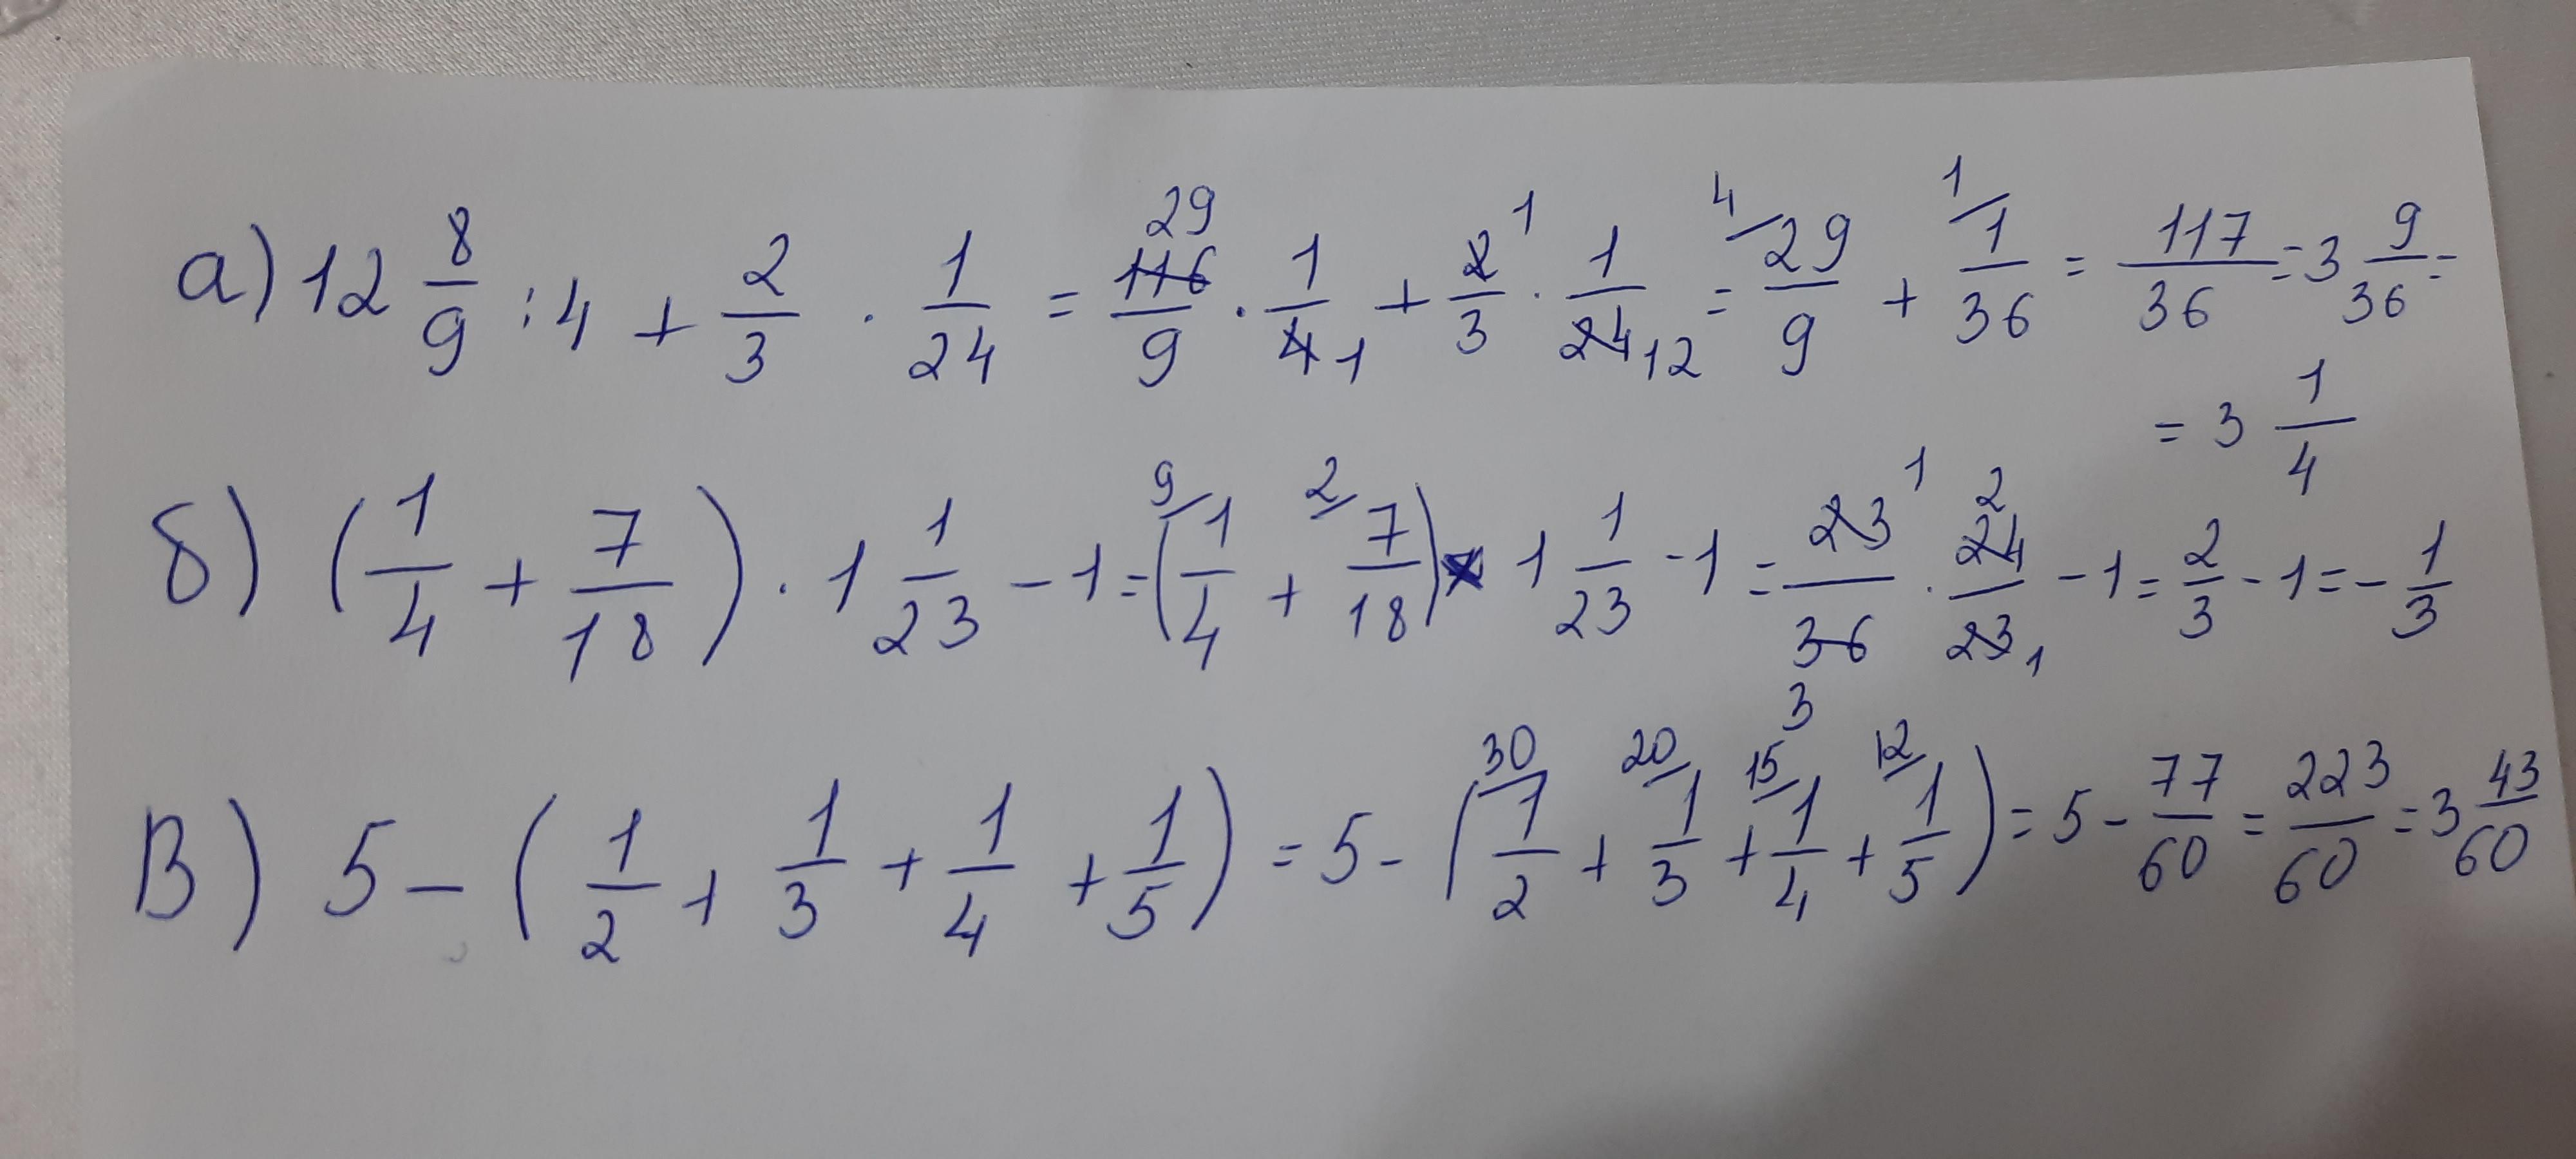 а) 12 8/9 : 4 + 2/3 · 1/24 = 116/9 29 · 1/4 1 + 2/3 1 · 1/24 12 = 4/ 29/9 + 1/ 1/36 = 117/36 = 3 9/36 =
= 3 1/4
б) (1/4 + 7/18) · 1 1/23 - 1 = (9/ 1/4 + 2/ 7/18) · 1 1/23 - 1 = 23/36 1 3 · 24/23 2 1 - 1 = 2/3 - 1 = - 1/3
В) 5 - (1/2 + 1/3 + 1/4 + 1/5) = 5 - (30/ 1/2 + 20/ 1/3 + 15/ 1/4 + 12/ 1/5) = 5 - 77/60 = 223/60 = 3 43/60